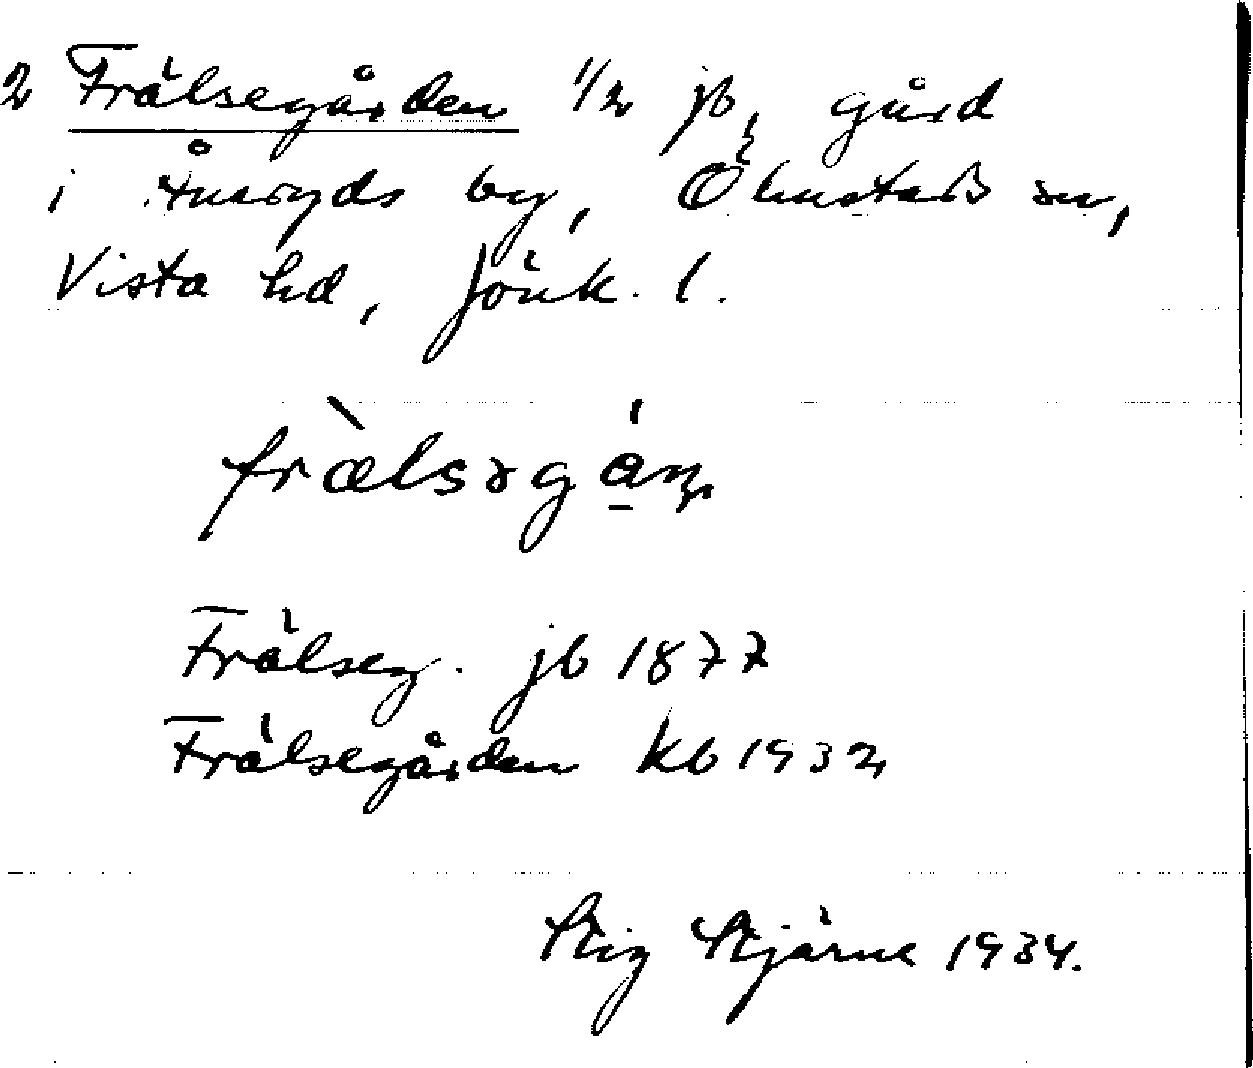 2 Frälsegården 1/2 jb, gård
i Åsaryds by, Ölmstads sn,
Vista hd, Jönk. l.
frælsəgán
Frälseg. jb 1877
Frälsegården kb 1932
Stig Stjärne 1934.